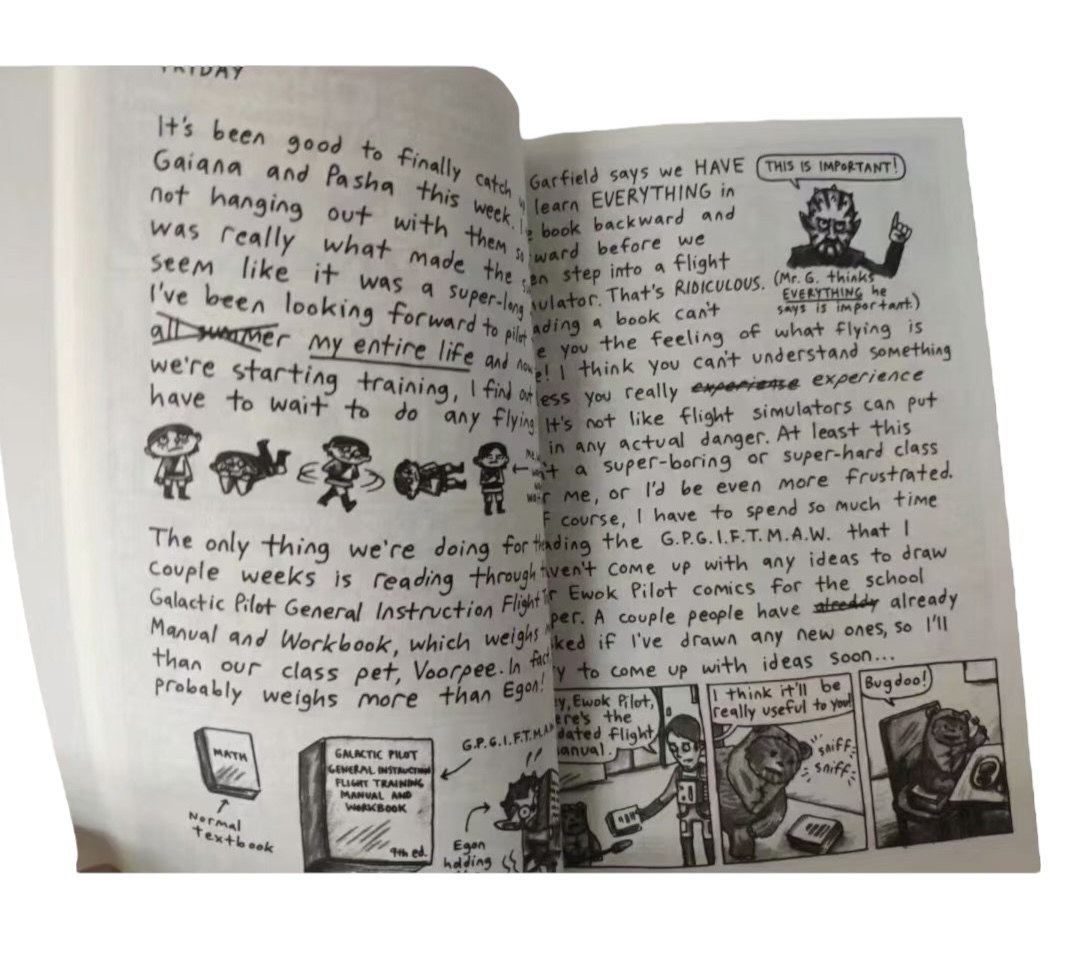 FRIDAY
It's been good to finally catch
Gaiana and Pasha this week.
not hanging out with them so
was really what made the
seem like it was a super-long
I've been looking forward to pilot
all summer my entire life and now
we're starting training, I find out
have to wait to do any flying
The only thing we're doing for
couple weeks is reading through
Galactic Pilot General Instruction Flight
Manual and Workbook, which weighs
than our class pet, Voorpee. In fact
probably weighs more than Egon!
MATH
Normal
textbook
GALACTIC PILOT
GENERAL INSTRUCTION
FLIGHT TRAINING
MANUAL AND
WORKBOOK
9th ed.
G.P.G.I.F.T.M.A.W.
Egon
holding
Garfield says we HAVE
learn EVERYTHING in
book backward and
ward before we
en step into a flight
ulator. That's RIDICULOUS.
ading a book can't
e you the feeling of what flying is
e! I think you can't understand something
ess you really experiense experience
It's not like flight simulators can put
in any actual danger. At least this
't a super-boring or super-hard class
r me, or I'd be even more frustrated.
f course, I have to spend so much time
ading the G.P.G.I.F.T.M.A.W. that I
ven't come up with any ideas to draw
r Ewok Pilot comics for the school
per. A couple people have alreddy already
ked if I've drawn any new ones, so I'll
y to come up with ideas soon...
THIS IS IMPORTANT!
(Mr. G. thinks
EVERYTHING he
says is important.)
y, Ewok Pilot,
ere's the
dated flight
anual.
I think it'll be
really useful to you!
sniff
sniff
Bugdoo!